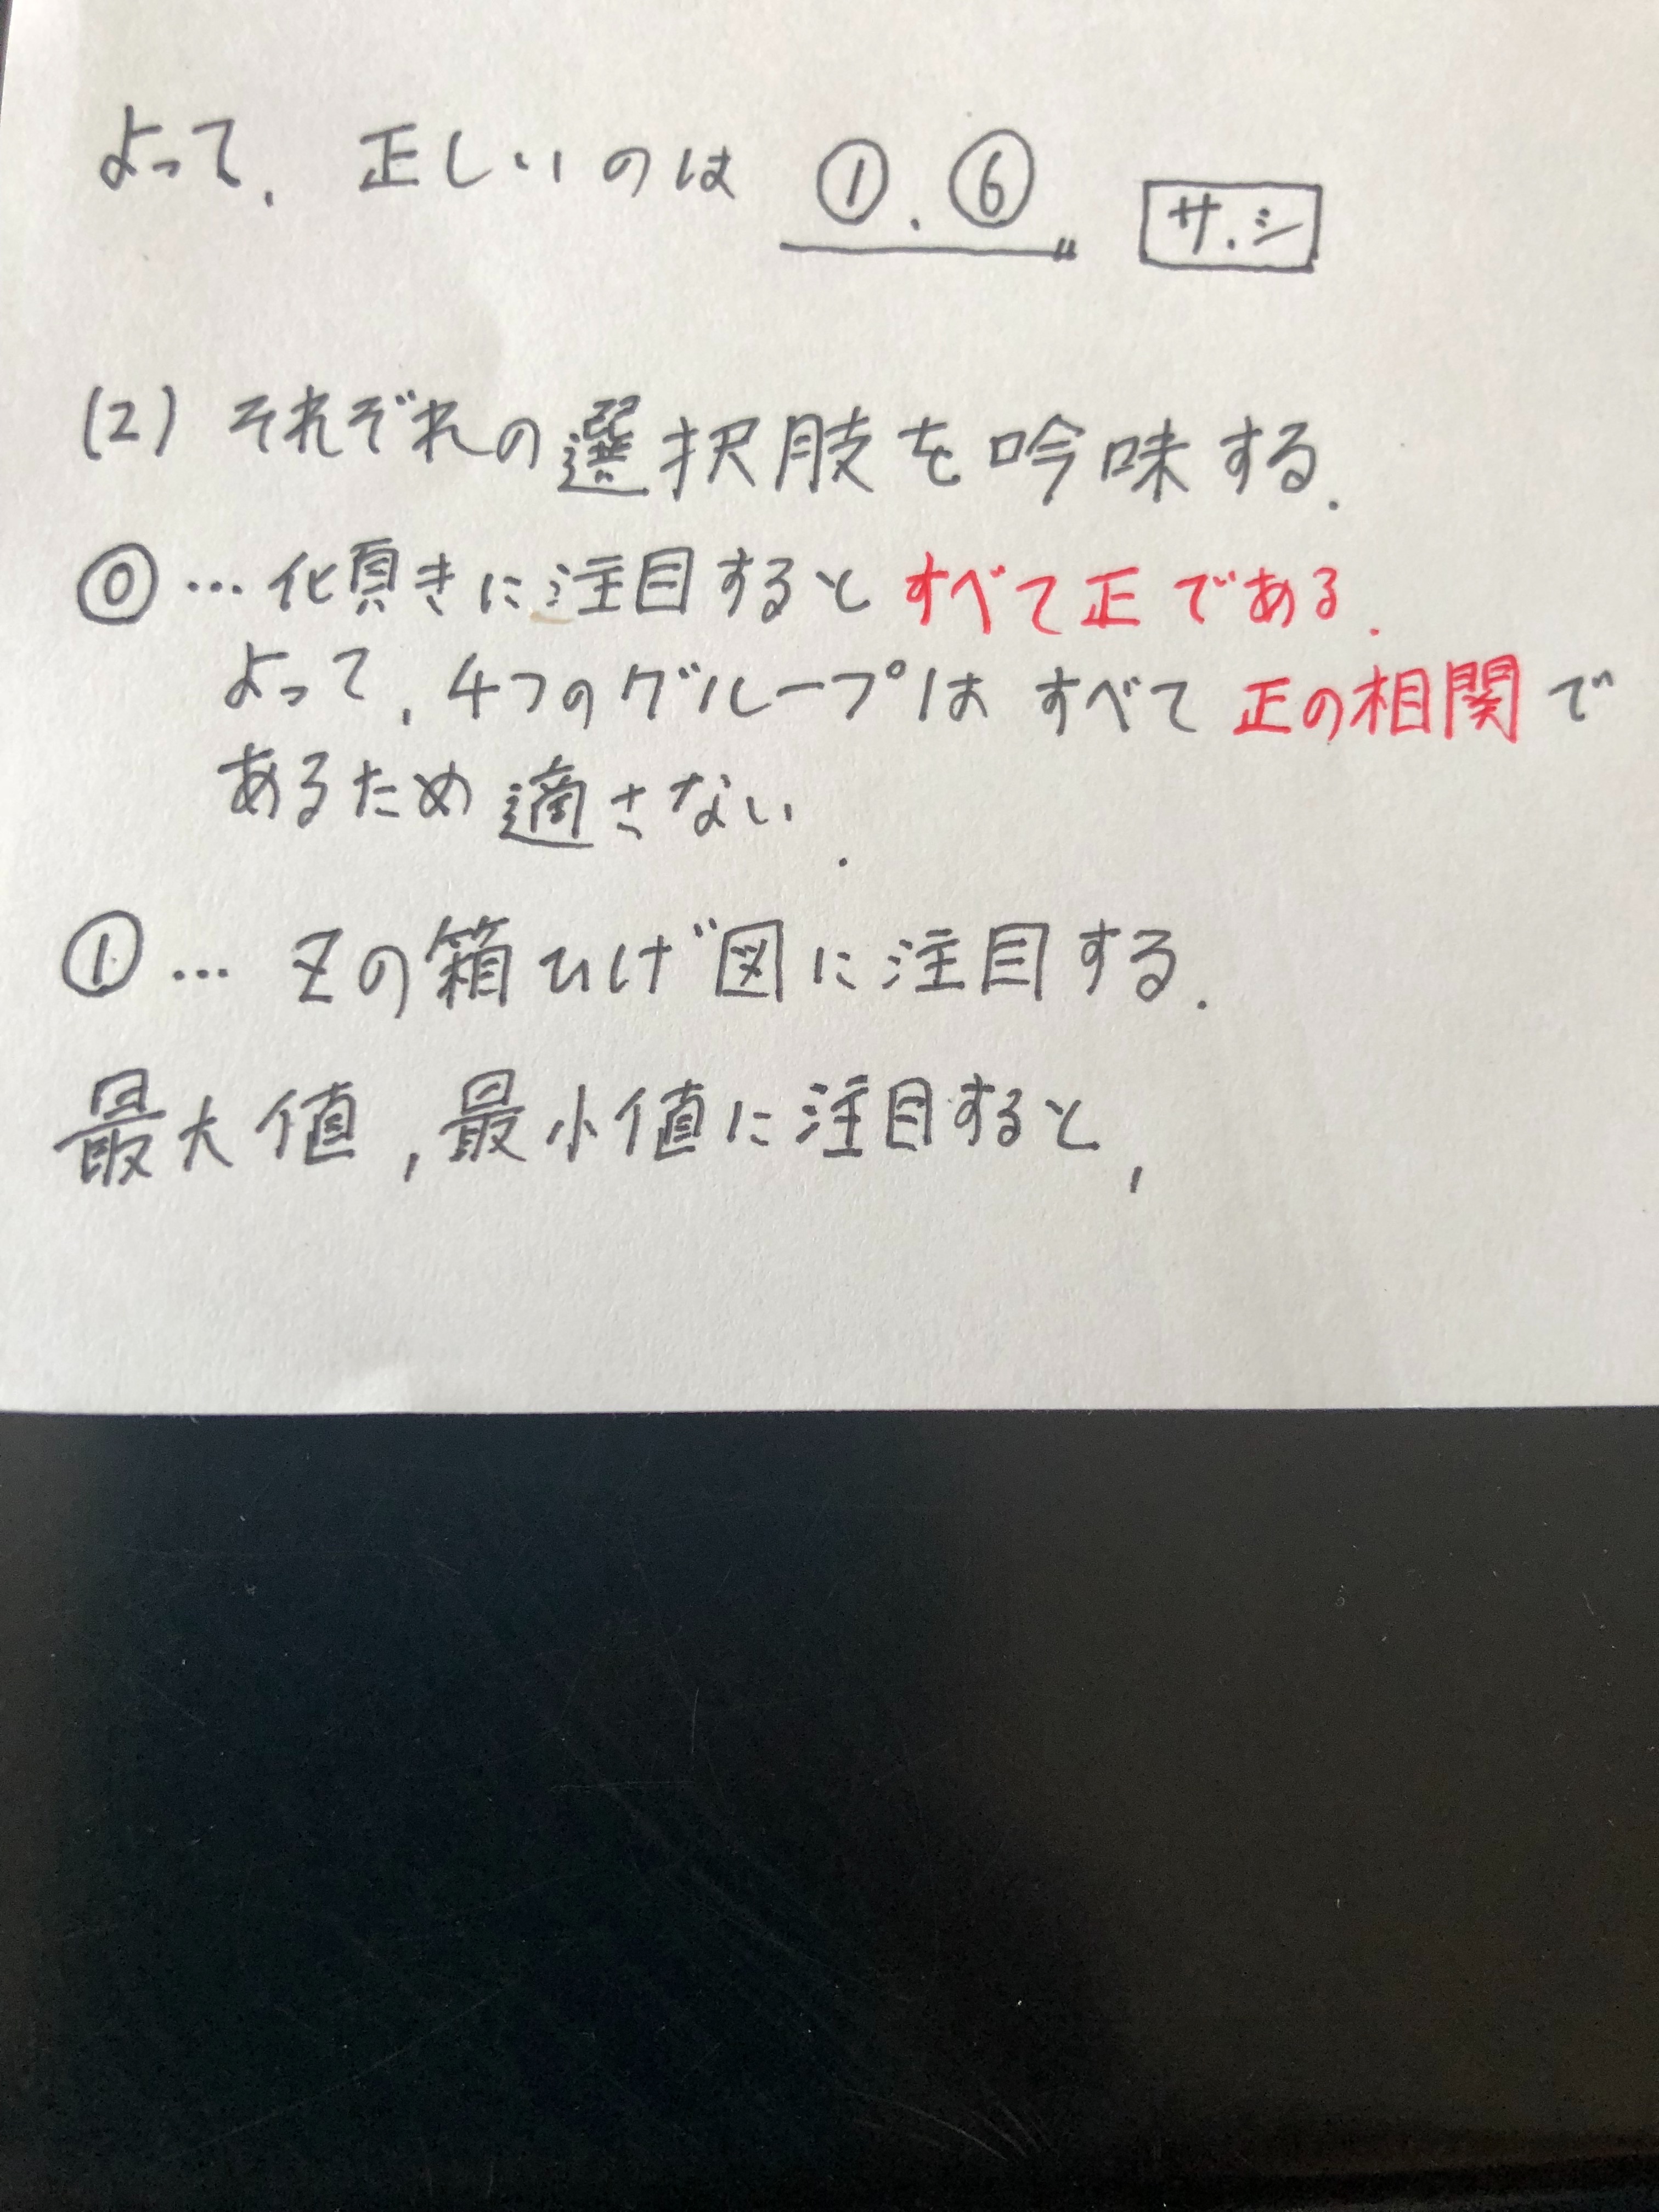 よって. 正しいのは ①. ⑥〃 サ.シ
(2) それぞれの選択肢を吟味する.
⓪ … 傾きに注目すると すべて正である.
よって, 4つのグループは すべて正の相関で
あるため 適さない.
① … Zの箱ひげ図に注目する.
最大値, 最小値に注目すると,